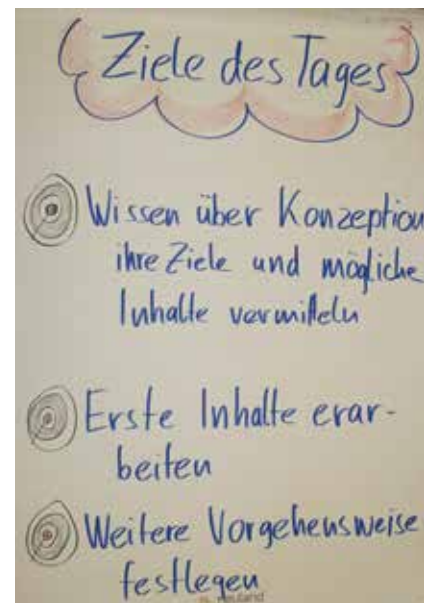 Ziele des Tages
Wissen über Konzeption
ihre Ziele und mögliche
Inhalte vermitteln
Erste Inhalte erar-
beiten
Weitere Vorgehensweise
festlegen
Neuland